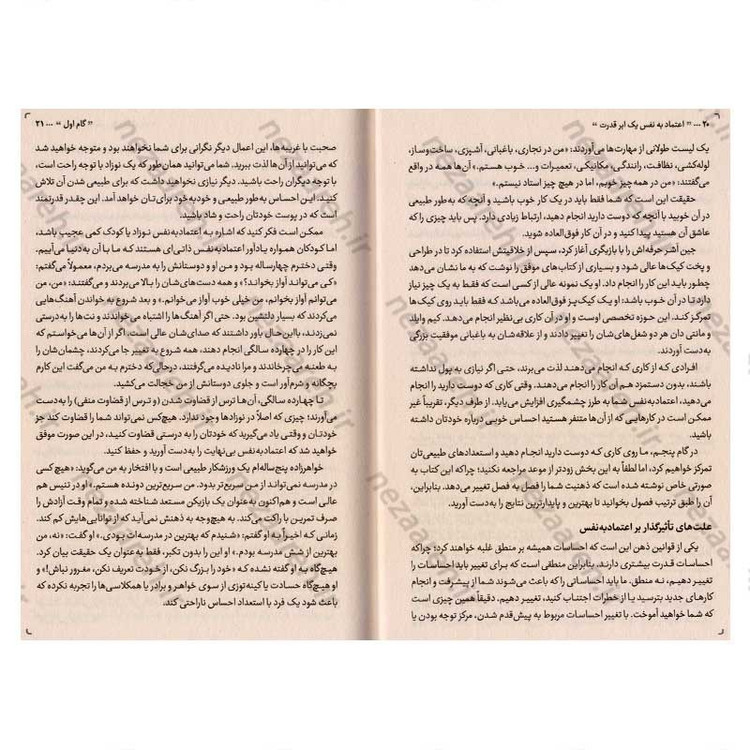 ۲۰ ... " اعتماد به نفس یک ابر قدرت "
یک لیست طولانی از مهارت‌ها می‌آوردند: «من در نجاری، باغبانی، آشپزی، ساخت‌وساز،
لوله‌کشی، نظافت، رانندگی، مکانیکی، تعمیرات و... خوب هستم.» آن‌ها همه در واقع
می‌گفتند: «من در همه‌چیز خوبم، اما در هیچ چیز استاد نیستم.»
حقیقت این است که شما فقط باید در یک کار خوب باشید و آنچه که به‌طور طبیعی
در آن خوبید با آنچه که دوست دارید انجام دهید، ارتباط زیادی دارد. پس باید چیزی را که
عاشق آن هستید پیدا کنید و در آن کار فوق‌العاده شوید.
جین آشر حرفه‌اش را با بازیگری آغاز کرد، سپس از خلاقیتش استفاده کرد تا در طراحی
و پخت کیک‌ها عالی شود و بسیاری از کتاب‌های موفق را نوشت که به ما نشان می‌دهد
چطور باید این کار را انجام داد. او یک نمونه عالی از کسی است که فقط به یک چیز نیاز
دارد تا در آن خوب باشد: او یک کیک‌پز فوق‌العاده می‌باشد که فقط باید روی کیک‌ها
تمرکز کند. این، حوزه تخصصی اوست و او در آن کاری بی‌نظیر انجام می‌دهد. کیم وایلد
و مانتی دان هر دو شغل‌های‌شان را تغییر دادند و از علاقه‌شان به باغبانی موفقیت بزرگی
به‌دست آوردند.
افرادی که از کاری که انجام می‌دهند لذت می‌برند، حتی اگر نیازی به پول نداشته
باشند، بدون دستمزد هم آن کار را انجام می‌دهند. وقتی کاری که دوست دارید را انجام
می‌دهید، اعتمادبه‌نفس شما به طرز چشمگیری افزایش می‌یابد. از طرف دیگر، تقریباً غیر
ممکن است در کارهایی که از آن‌ها متنفر هستید احساس خوبی درباره خودتان داشته
باشید.
در گام پنجم، ما روی کاری که دوست دارید انجام دهید و استعدادهای طبیعی‌تان
تمرکز خواهیم کرد، اما لطفاً به این بخش زودتر از موعد مراجعه نکنید؛ چراکه این کتاب به
صورتی خاص نوشته شده است که ذهنیت شما را فصل به فصل تغییر می‌دهد. بنابراین،
آن را طبق ترتیب فصول بخوانید تا بهترین و پایدارترین نتایج را به‌دست آورید.
علت‌های تأثیرگذار بر اعتمادبه‌نفس
یکی از قوانین ذهن این است که احساسات همیشه بر منطق غلبه خواهند کرد؛ چراکه
احساسات قدرت بیشتری دارند. بنابراین منطقی است که برای تغییر باید احساسات را
تغییر دهیم، نه منطق. ما باید احساساتی را که باعث می‌شوند شما از پیشرفت و انجام
کارهای جدید بترسید یا از خطرات اجتناب کنید، تغییر دهیم. دقیقاً همین چیزی است
که شما خواهید آموخت. با تغییر احساسات مربوط به پیش‌قدم شدن، مرکز توجه بودن یا
" گام اول " ... ۲۱
صحبت با غریبه‌ها، این اعمال دیگر نگرانی برای شما نخواهند بود و متوجه خواهید شد
که می‌توانید از آن‌ها لذت ببرید. شما می‌توانید همان‌طور که یک نوزاد با توجه راحت است،
با توجه دیگران راحت باشید. دیگر نیازی نخواهید داشت که برای طبیعی شدن آن تلاش
کنید. این احساس به‌طور طبیعی و خودبه‌خود برای‌تان خواهد آمد. این چقدر قدرتمند
است که در پوست خودتان راحت و شاد باشید.
ممکن است فکر کنید که اشاره به اعتمادبه‌نفس نوزاد یا کودک کمی عجیب باشد،
اما کودکان همواره یادآور اعتمادبه‌نفس ذاتی‌ای هستند که ما با آن به‌دنیا می‌آییم.
وقتی دخترم چهارساله بود و من او و دوستانش را به مدرسه می‌بردم، معمولاً می‌گفتم:
«کی می‌تواند آواز بخواند؟» و همه دست‌های‌شان را بالا می‌بردند و می‌گفتند: «من، من
می‌توانم آواز بخوانم، من خیلی خوب آواز می‌خوانم.» و بعد شروع به خواندن آهنگ‌هایی
می‌کردند که بسیار دلنشین بود. حتی اگر آهنگ‌ها را اشتباه می‌خواندند و نت‌ها را به‌درستی
نمی‌زدند، بااین‌حال باور داشتند که صدای‌شان عالی است. اگر از آن‌ها می‌خواستم که
این کار را در چهارده سالگی انجام دهند، همه شروع به تغییر جا می‌کردند، چشمان‌شان را
به طعنه می‌چرخاندند و مرا نادیده می‌گرفتند، درحالی‌که دخترم به من می‌گفت این کارم
بچگانه و شرم‌آور است و جلوی دوستانش از من خجالت می‌کشید.
تا چهارده سالگی، آن‌ها ترس از قضاوت شدن (و ترس از قضاوت منفی) را به‌دست
می‌آورند؛ چیزی که اصلاً در نوزادها وجود ندارد. هیچ‌کس نمی‌تواند شما را قضاوت کند جز
خودتان و وقتی یاد می‌گیرید که خودتان را به درستی قضاوت کنید، در این صورت موفق
خواهید شد که اعتمادبه‌نفس بی‌نهایت را به‌دست آورید و حفظ کنید.
خواهرزاده پنج‌ساله‌ام یک ورزشکار طبیعی است و با افتخار به من می‌گوید: «هیچ‌کسی
در مدرسه نمی‌تواند از من سریع‌تر بدود. من سریع‌ترین دونده هستم.» او در تنیس هم
عالی است و هم‌اکنون به‌عنوان یک بازیکن مستعد شناخته شده و تمام وقت آزادش را
صرف تمرین با راکت می‌کند. به هیچ‌وجه به ذهنش نمی‌آید که از توانایی‌هایش کم کند.
زمانی که اخیراً به او گفتم: «شنیدم که بهترین در مدرسه‌ات بودی.» او گفت: «نه، من
بهترین از شش مدرسه بودم.» او این را بدون تکبر، فقط به‌عنوان یک حقیقت بیان کرد.
هیچ‌گاه به او گفته نشده که «خود را بزرگ نکن، از خودت تعریف نکن، مغرور نباش!» و
او هیچ‌گاه حسادت یا کینه‌توزی از سوی خواهر و برادر یا همکلاسی‌ها را تجربه نکرده که
باعث شود یک فرد با استعداد احساس ناراحتی کند.
nezaaneh.ir